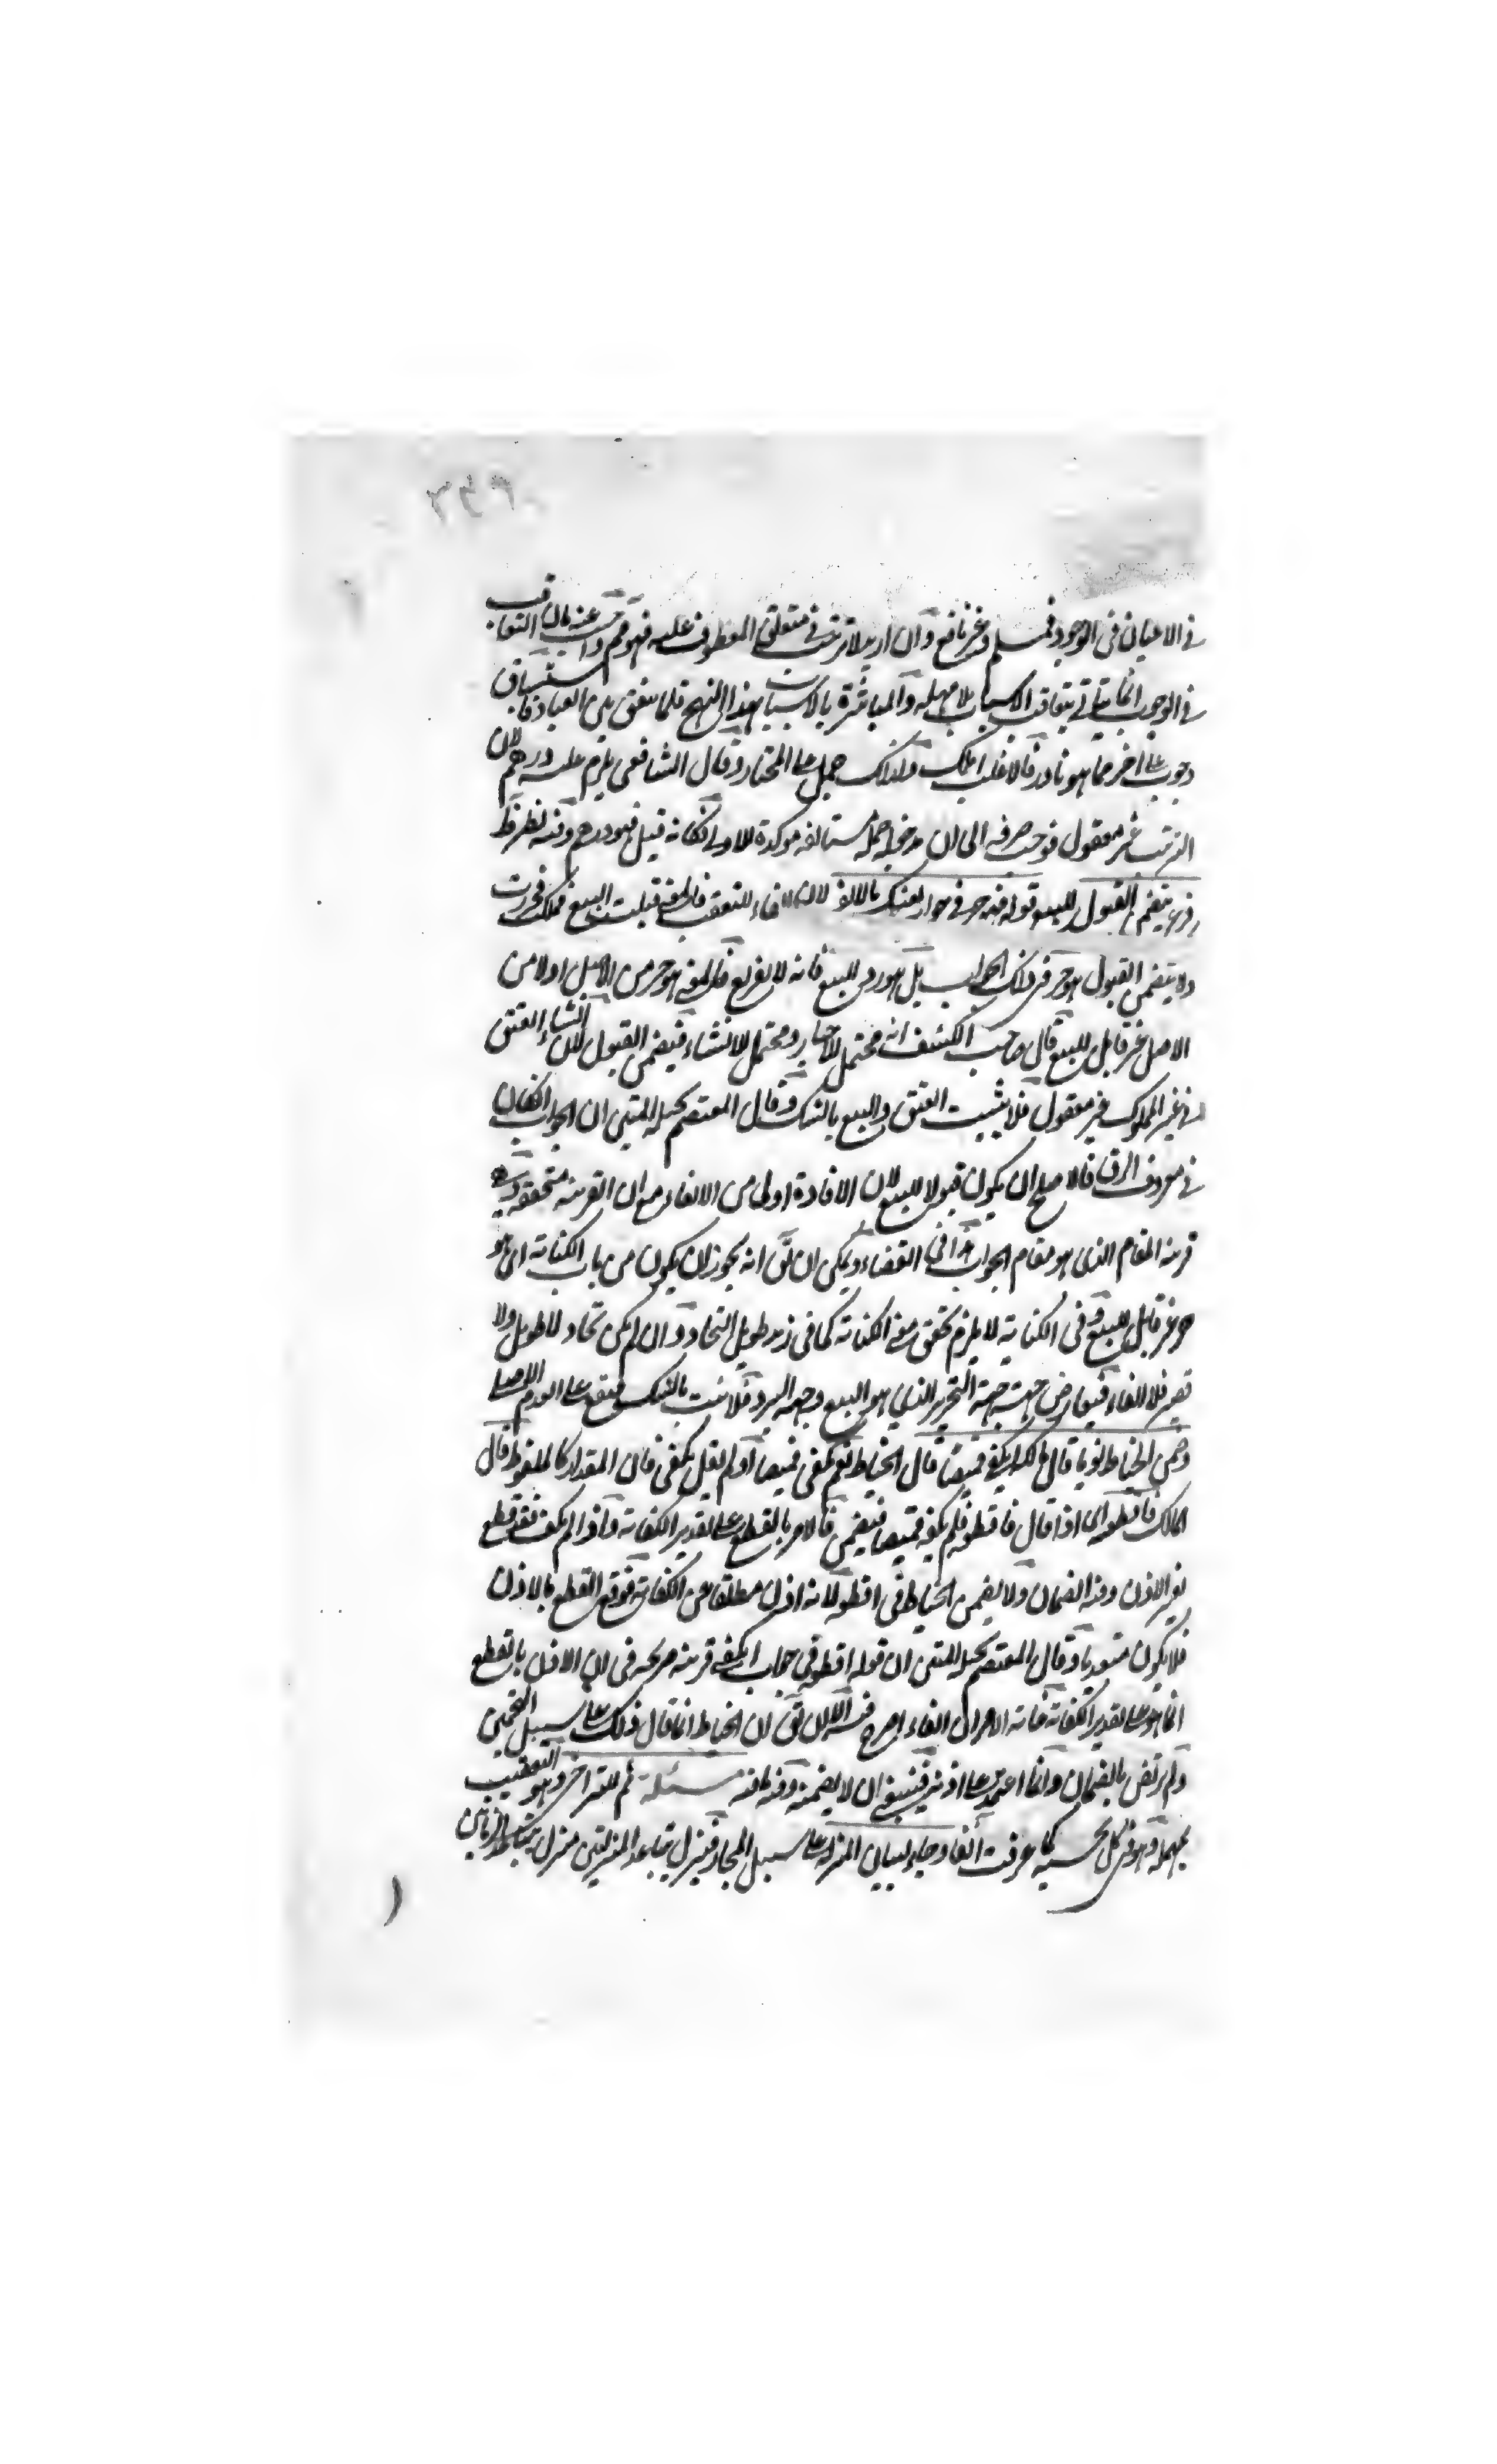 في الاعيان في الوجود فمسلم وغير نافع وان اريد لا ترتب في متعلق المعطوف عليه فهو مم واجب عنه بان التعاقب
في الوجوب انما يتأتى بتعاقب الاسباب بلا مهلة والمباشرة بالاسباب بهذا النهج قلما يتفق بين العباد
وجوب على اخر مما هو نادر فالاغلب ولذلك حمل على المختار وقال الشافعي يلزم عليه درهم لان
الترتيب غير معقول فوجب صرفه الى ان مدخوله جملة مستانفة موكدة للاولى فكانه قيل فهو درهم وفيه نظر
ويتضمن القبول للبيع قوله فهو حر في جواب بعتكه بالالف لان الفاء للتعقب قبلت البيع فملكت فحررت
ولا يتضمن القبول هو حر في ذلك الجواب بل هو رد للبيع فانه لا تفريع هو حر من الاصل اولا من
الاصل غير قابل للبيع قال صاحب الكشف انه محتمل للاخبار ومحتمل للانشاء فيتضمن القبول لان انشاء العتق
في غير المملوك غير معقول فلا يثبت العتق والبيع بالشك وقال المعتصم بحبله المتين ان الجواب ان كان
في معروف الرق فالاصلح ان يكون قبولا للبيع لان الافادة اولى من الالغاء مع ان القرينة متحققة وهي
قرينة المقام الذي هو مقام الجواب هذا في القضاء ويمكن ان يق انه يجوز ان يكون من باب الكناية اي هو
حر غير قابل للبيع وفي الكناية لا يلزم تحقق معنى الكناية كما في زيد طويل النجاد وان لم يكن نجاد لا طويل ولا
قصير فلا الغاء فتعارض جهة التحرير الذي هو البيع وجهة الرد فلا يثبت بالشك فيبقى على العدم الاصلي
وضمن الخياط ثوبا قال مالكه ايكفي قميصا قال الخياط نعم يكفي قميصا او لم يقل يكفي فان المقدر كالملفوظ قال
المالك فاقطعه اي اذا قال فاقطعه فلم يكفه قميصا فيضمن فالامر بالقطع على تقدير الكفاية واذا لم يكف فقد قطع
بغير الاذن وفيه الضمان ولا يضمن الخياط في اقطعه لانه اذن مطلقا عن الكفاية فوقع القطع بالاذن
فلا يكون متعديا وقال المعتصم بحبله المتين ان قوله اقطعه في جواب ايكفي قرينة صريحة في ان الاذن بالقطع
انما هو على تقدير الكفاية فاية الامر ان الفاء اصرح فيه الا ان يق ان الخياط انما قال ذلك على سبيل التخمين
ولم يرتض بالضمان وانما اعتمد على اذنه فينبغي ان لا يضمنه وفيه مافيه مسئلة ثم للتراخي وهو التعقيب
بمهلة وهو في كل بحسبه كما عرفت آنفا وجاء لبيان المنزلة على سبيل المجاز فينزل تباعد المنزلتين منزل تباعد الزمانين